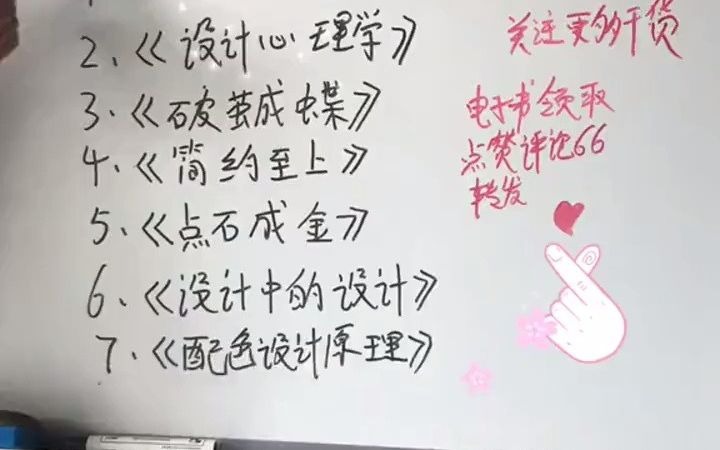 2、《设计心理学》
3、《破茧成蝶》
4、《简约至上》
5、《点石成金》
6、《设计中的设计》
7、《配色设计原理》
关注更多干货
电子书领取
点赞评论66
转发